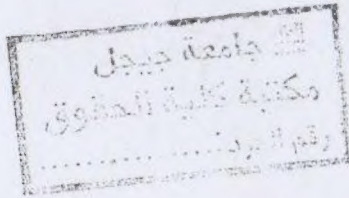 جامعة جيجل
مكتبة كلية الحقوق
رقم الجرد:..............